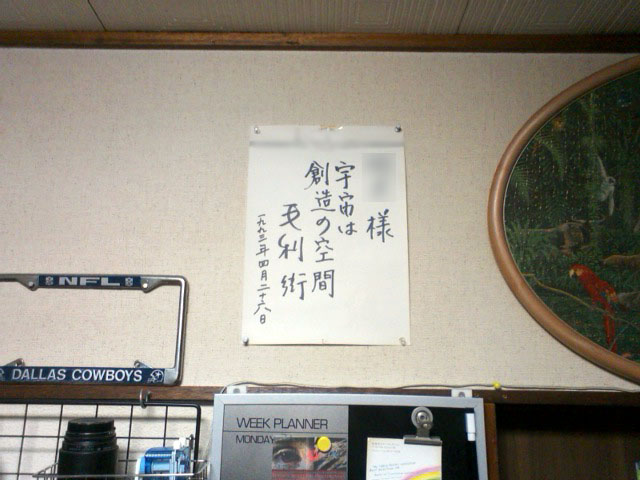 様
宇宙は
創造の空間
毛利衛
一九九三年四月二十六日
NFL
DALLAS COWBOYS
WEEK PLANNER
MONDAY